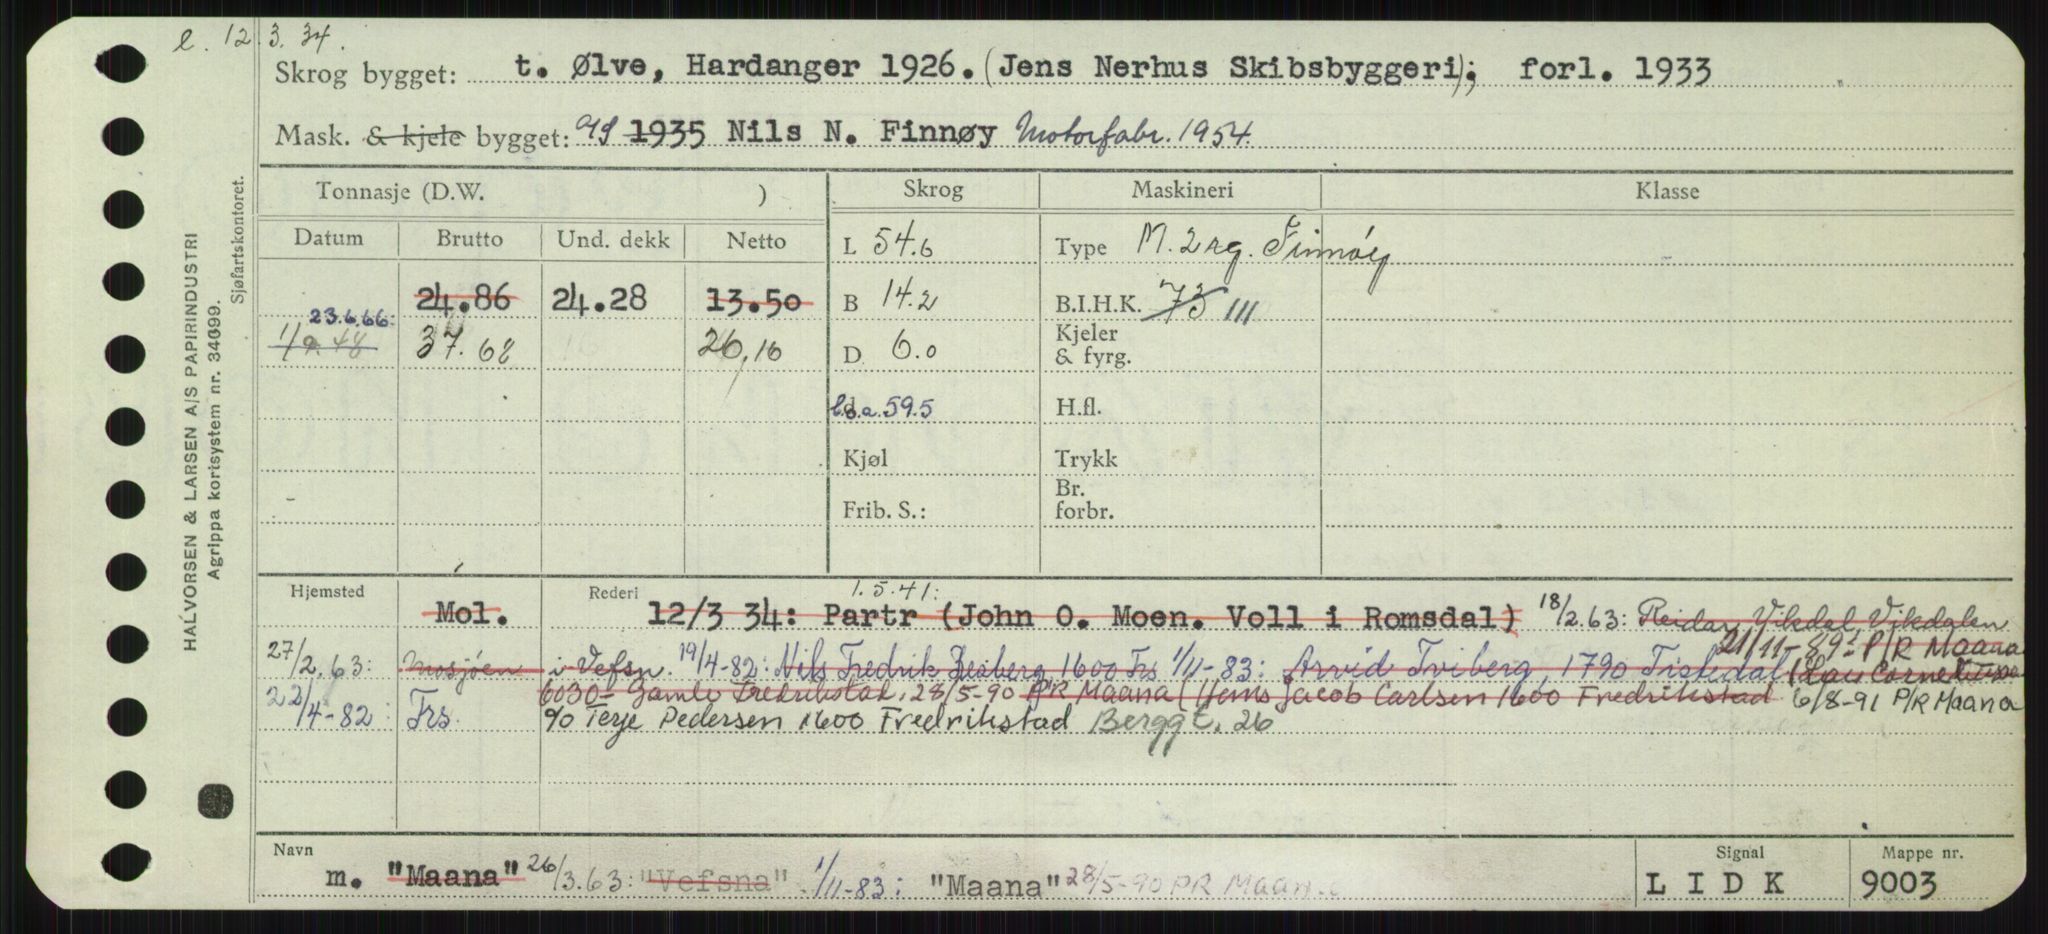 e. 12.3.34.
Skrog bygget: t. Ølve, Hardanger 1926. (Jens Nerhus Skibsbyggeri); forl. 1933
Mask. & kjele bygget: 1935 Nils N. Finnøy Motorfabr. 1954.
Tonnasje (D.W. ) Skrog Maskineri Klasse
Datum Brutto Und. dekk Netto L 54.6 Type M. 2 sg. Finnøy
24.86 24.28 13.50 B 14.2 B.I.H.K. 73 111
23.6.66:
1/9.48 37.68 26,16 D. 6.0 Kjeler & fyrg.
l.o.a. 59.5 H.fl.
Kjøl Trykk
Frib. S.: Br. forbr.
Hjemsted Rederi 1.5.41:
Mol. 12/3 34: Partr (John O. Moen. Voll i Romsdal) 18/2.63: Reidar Vikdal Vikdalen
21/11-89: P/R Maana
27/2.63: Mosjøen i Vefsn. 19/4-82: Nils Fredrik 1600 Frs 1/11-83: Arvid Tviberg, 1790 Tistedal
22/4-82: Frs. Gamle Fredrikstad. 28/5-90 P/R Maana (Jens Jacob Carlsen 1600 Fredrikstad 6/8-91 P/R Maana
Terje Pedersen 1600 Fredrikstad Berggt. 26
Navn Signal Mappe nr.
m. "Maana" 26/3.63: "Vefsna" 1/11-83: "Maana" 28/5-90 PR Maana LIDK 9003
HALVORSEN & LARSEN A/S PAPIRINDUSTRI
Agrippa kortsystem nr. 34099.
Sjøfartskontoret.